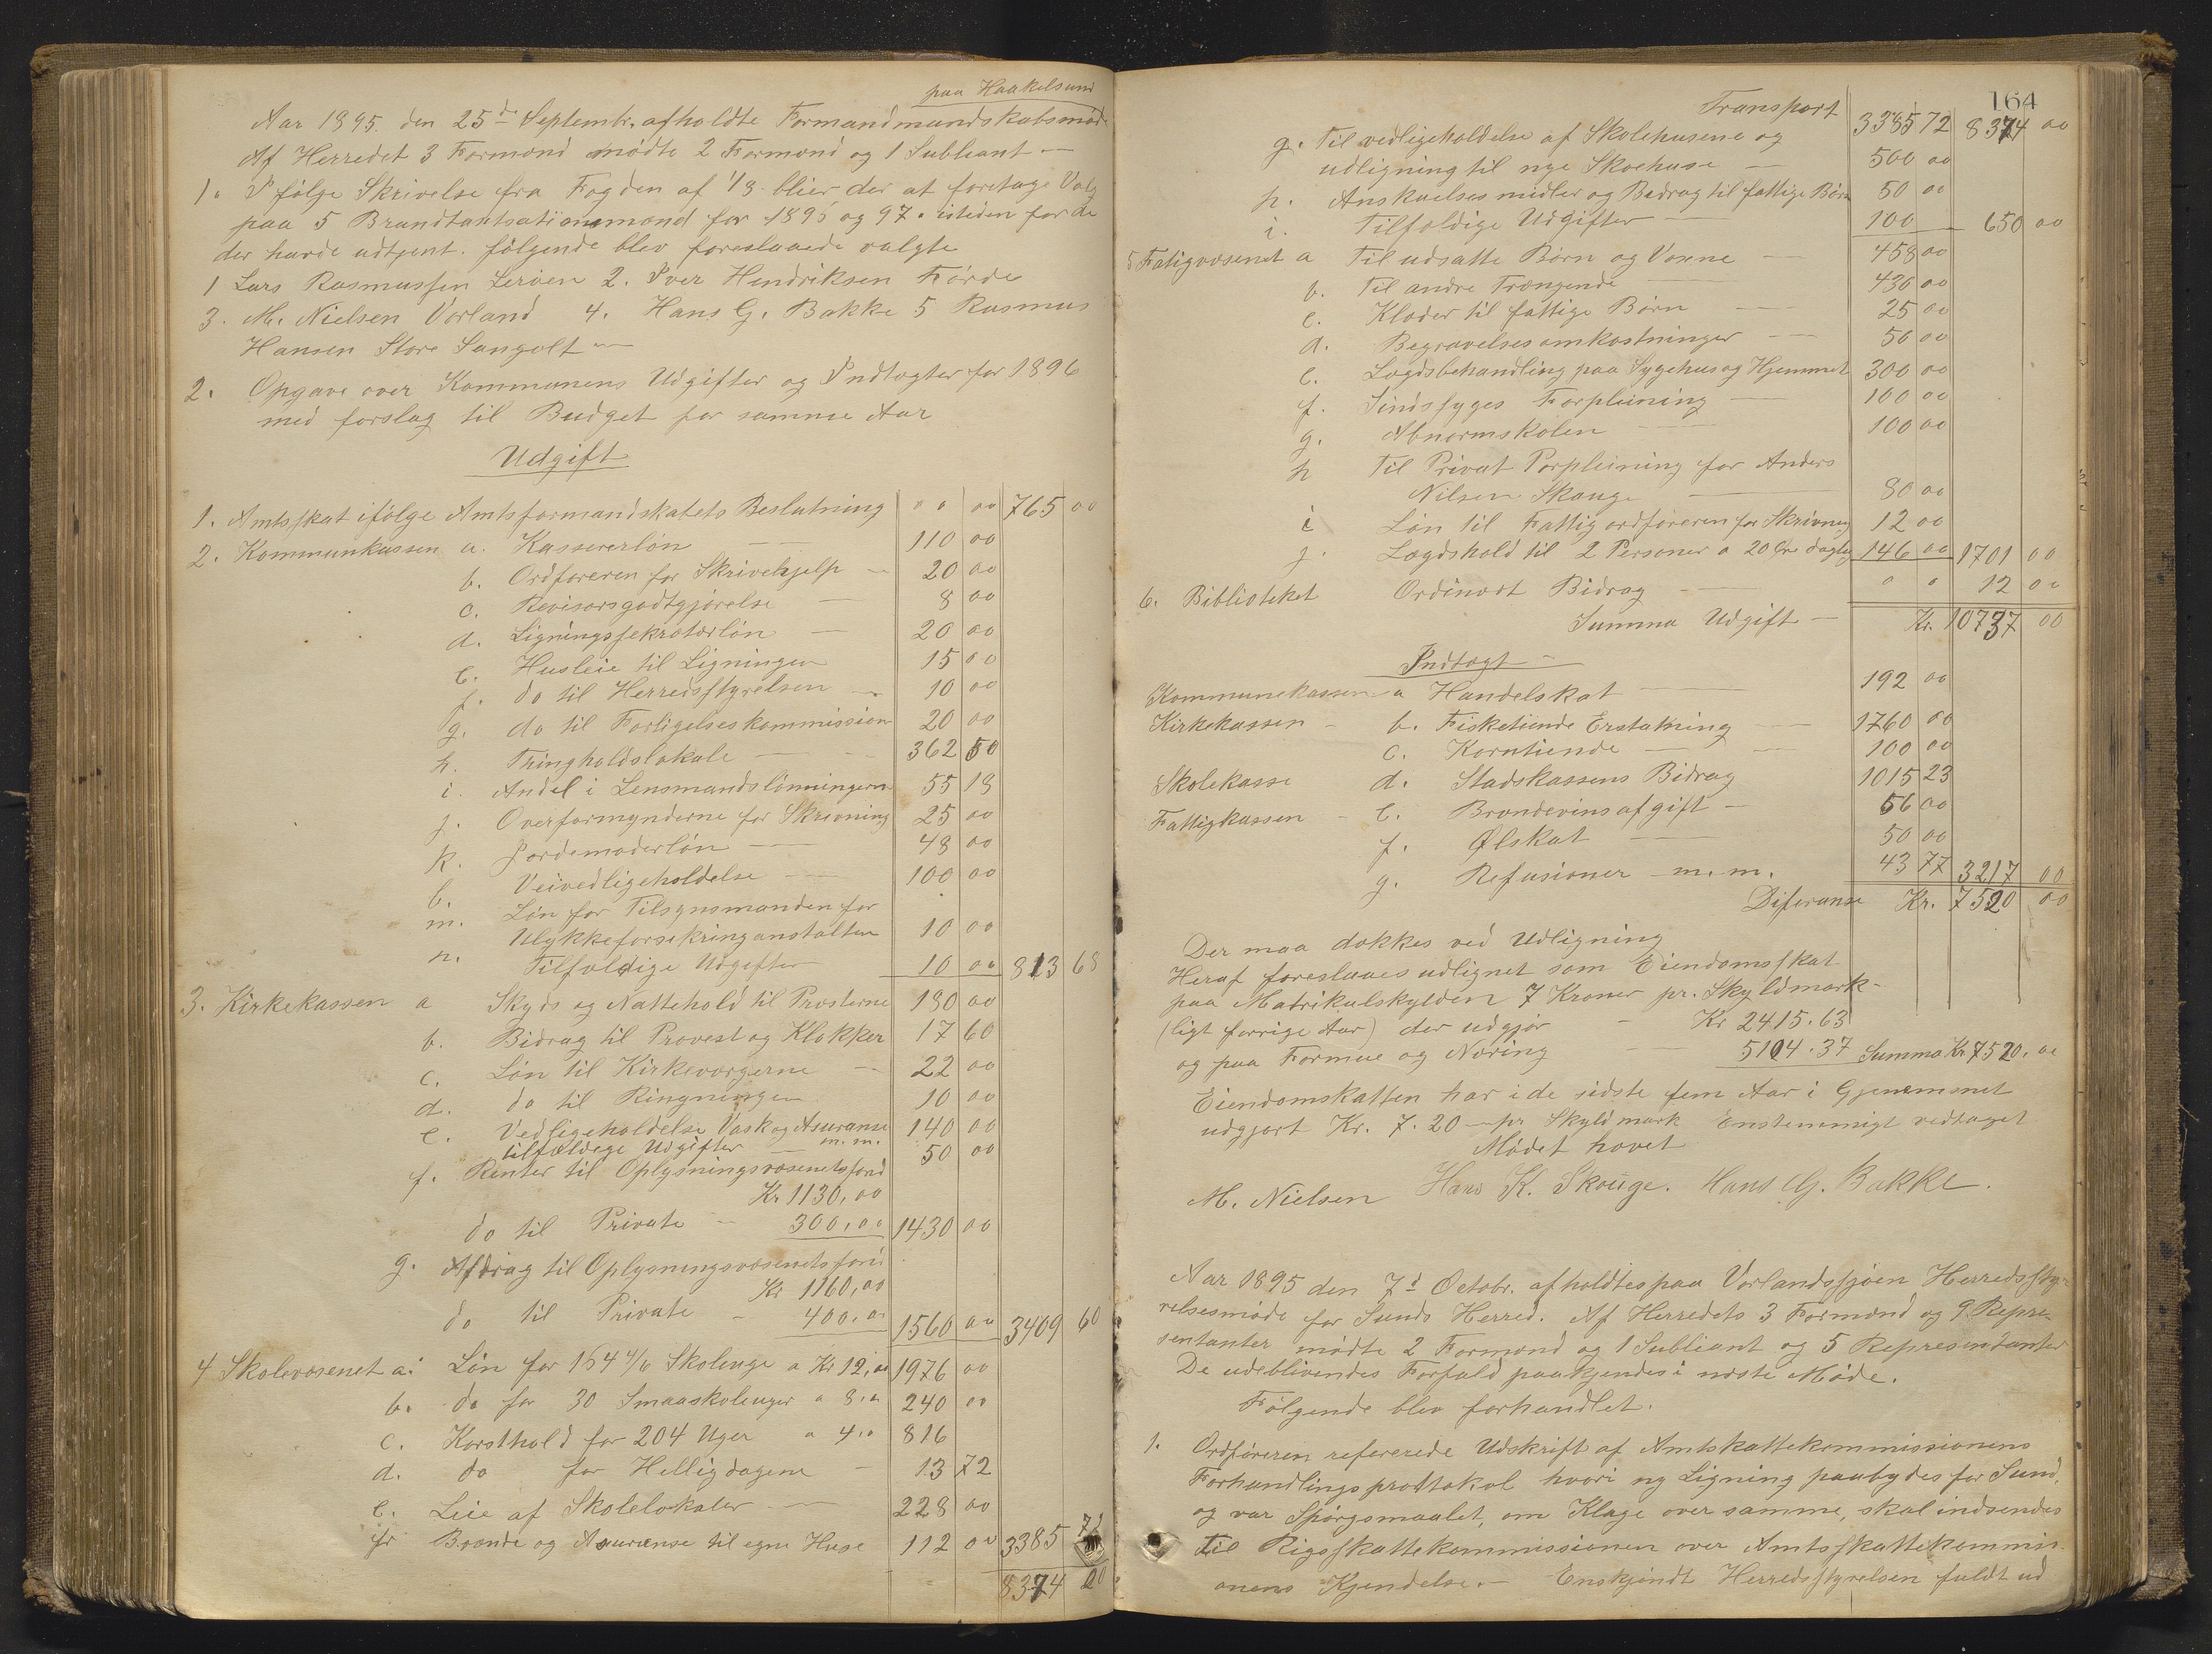 paa Haakelsund
Aar 1895. den 25de Septembr. afholdte Formandmandskabsmøde
Af Herredet 3 Formænd mødte 2 Formænd og 1 Subliant —
1. Ifølge Skrivelse fra Fogden af 1/8 blier der at foretage Valg
paa 5 Brandtaxtsationsmænd for 1896 og 97. isteden for de
der havde udtjent. følgende blev foreslaaede valgte
1 Lars Rasmussen Lerøen 2. Iver Hendriksen Førde
3. M. Nielsen Vorland 4. Hans G. Bakke 5 Rasmus
Hansen Store Sangolt —
2. Opgave over Kommunens Udgifter og Indtægter for 1896
med forslag til Budget for samme Aar
Udgift
1. Amtsskat ifølge Amtsformandskabets Beslutning " " 00 765 00
2. Kommunkassen a. Kassererløn — 110 00
b. Ordføreren for Skrivehjelp — 20 00
c. Revisorsgodtgjørelse — 8 00
d. Ligningssekretærløn — 20 00
e. Husleie til Ligningen 15 00
f. do til Herredsstyrelsen — 10 00
g. do til Forligelseskommission 20 00
h. Thingholdslokale — 362 50
i. Andel i Lensmandslønningerne 55 18
j. Overformynderne for Skrivning 25 00
k. Jordemoderløn — 48 00
l. Veivedligeholdelse — 100 00
m. Løn for Tilsynsmanden for
Ulykkeforsikringanstalten 10 00
n. Tilfældige Udgifter 10 00 813 68
3. Kirkekassen a Skyds og Nattehold til Præsterne 180 00
b. Bidrag til Provest og Klokker 17 60
c. Løn til Kirkeværgerne — 22 00
d. do til Ringningen 10 00
e. Vedligeholdelse Vask og Asuranse m.m. 140 00
tilfældege Udgifter — 50 00
f. Renter til Oplysningsvæsenetsfond
Kr. 1130,00
do til Private — 300,00 1430 00
g. Afdrag til Oplysningsvæsenetsfond
Kr 1160,00
do til Private — 400,00 1560 00 3409 60
4 Skolevæsenet a. Løn for 164 4/6 Skoleuge a Kr 12,00 1976 00
b. do for 30 Smaaskoleuger a 8,00 240 00
c. Kosthold for 204 Uger a 4,0 816
d. do for Helligdagene — 13 72
e. Leie af Skolelokaler — 228 00
f Brænde og Asuranse til egne Huse 112 00 3385 72
8374 00
164
Transport 3385 72 8374 00
g. Til vedligeholdelse af Skolehusene og
udligning til nye Skoehuse — 500 00
h. Anskuelsesmidler og Bidrag til fattige Børn 50 00
i. Tilfældige Udgifter — 100 — 650 00
5 Fatigvæsenet a Til udsatte Børn og Voxne — 458 00
b. Til andre Trængende — 430 00
c. Klæder til fattige Børn — 25 00
d. Begravelsesomkostninger — 50 00
e. Lægdsbehandling paa Sygehus og Hjemmet 300 00
f. Sindssyges Forpleining — 100 00
g. Abnormskolen — 100 00
h Til Privat Forpleining for Anders
Nilsen Skauge — 80 00
i Løn til Fattigordføreren for Skrivning 12 00
j. Lægdshold til 2 Personer a 20 Øre daglig 146 00 1701 00
6. Biblioteket Ordinært Bidrag — " " 12 00
Summa Udgift — Kr. 10737 00
Indtægt —
Kommunekassen a Handelskat — 192 00
Kirkekassen — b. Fisketiende Erstatning — 1760 00
c. Korntiende — 100 00
Skolekasse d. Stadskassens Bidrag 1015 23
Fattigkassen — e. Brændevinsafgift — 56 00
f. Ølskat — 50 00
g. Refusioner m.m. 43 77 3217 00
Diferanse Kr. 7520 00
Der maa dækkes ved Udligning
Heraf foreslaaes udlignet som Eiendomsskat
paa Matrikulskylden 7 Kroner pr. Skyldmark —
(ligt forrige Aar) der udgjør — Kr 2415.63
og paa Formue og Næring — 5104.37 Summa Kr 7520,00
Eiendomskatten har i de sidste fem Aar i Gjenemsnet
udgjort Kr. 7.20 — pr. Skyldmark Enstemmigt vedtaget
Mødet hævet
M. Nielsen Hans K. Skouge. Hans G. Bakke.
Aar 1895 den 7d Octobr. afholdtes paa Vorlandssjøen Herredssty-
relsesmøde for Sunds Herred. Af Herredets 3 Formænd og 9 Repre-
sentanter mødte 2 Formænd og 1 Subliant og 5 Representanter
De udeblivendes Forfald paakjendes i næste Møde.
Følgende blev forhandlet.
1. Ordføreren refererede Udskrift af Amtskattekommissionens
Forhandlingsprottokol hvori ny Ligning paabydes for Sund,
og var Spørgsmaalet, om Klage over samme, skal indsendes
til Rigsskattekommissionen over Amtsskattekommis-
onens Kjendelse. — Enskjøndt Herredsstyrelsen fuldt ud